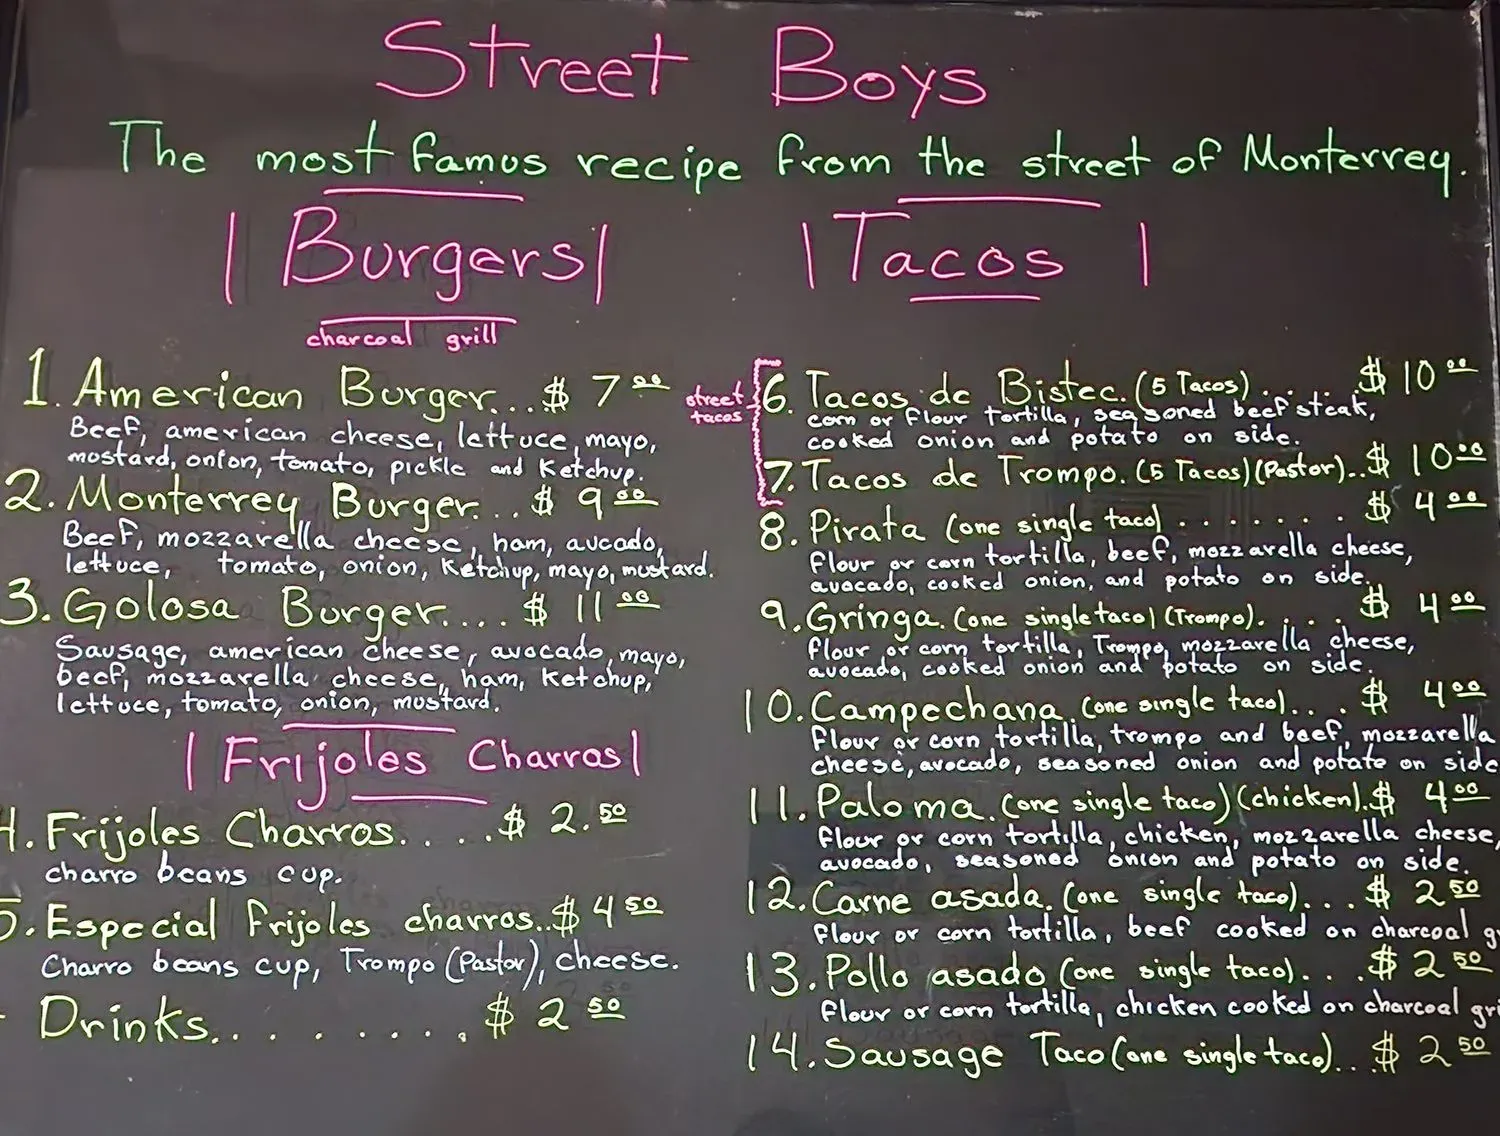 Street Boys
The most famus recipe from the street of Monterrey.
Burgers
charcoal grill
1. American Burger...$ 7.00
Beef, american cheese, lettuce, mayo,
mustard, onion, tomato, pickle and Ketchup.
2. Monterrey Burger...$ 9.00
Beef, mozzarella cheese, ham, aucado,
lettuce, tomato, onion, Ketchup, mayo, mustard.
3. Golosa Burger....$ 11.00
Sausage, american cheese, avocado, mayo,
beef, mozzarella cheese, ham, Ketchup,
lettuce, tomato, onion, mustard.
Frijoles Charros
4. Frijoles Charros.....$ 2.50
charro beans cup.
5. Especial frijoles charros..$ 4 50
Charro beans cup, Trompo (Pastor), cheese.
- Drinks.........$ 2 50
Tacos
street tacos
6. Tacos de Bistec. (5 Tacos).....$ 10 00
corn or flour tortilla, seasoned beef steak,
cooked onion and potato on side.
7. Tacos de Trompo. (5 Tacos) (Pastor)..$ 10 00
8. Pirata (one single taco).......$ 4 00
flour or corn tortilla, beef, mozzarella cheese,
avocado, cooked onion, and potato on side.
9. Gringa. (one single taco) (Trompo)....$ 4 00
flour or corn tortilla, Trompo, mozzarella cheese,
avocado, cooked onion and potato on side.
10. Campechana (one single taco)...$ 4 00
flour or corn tortilla, trompo and beef, mozzarella
cheese, avocado, seasoned onion and potate on side
11. Paloma. (one single taco) (chicken).$ 4 00
flour or corn tortilla, chicken, mozzarella cheese,
avocado, seasoned onion and potato on side.
12. Carne asada. (one single taco)...$ 2 50
flour or corn tortilla, beef cooked on charcoal gr
13. Pollo asado (one single taco)...$ 2 50
flour or corn tortilla, chicken cooked on charcoal gri
14. Sausage Taco (one single taco)...$ 2 50